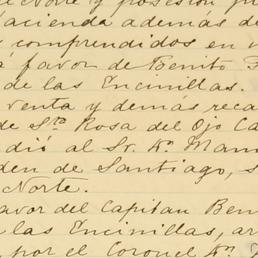 de Norte, y posesion
Hacienda además de
comprendidos en
á favor de Benito
de las Encinillas.
venta y demás reca
de Sta Rosa del Ojo Ca
dió al Sr. Dn Man
den de Santiago, s
Norte.
avor del Capitan Ben
las Encinillas, ar
por el Coronel Dn